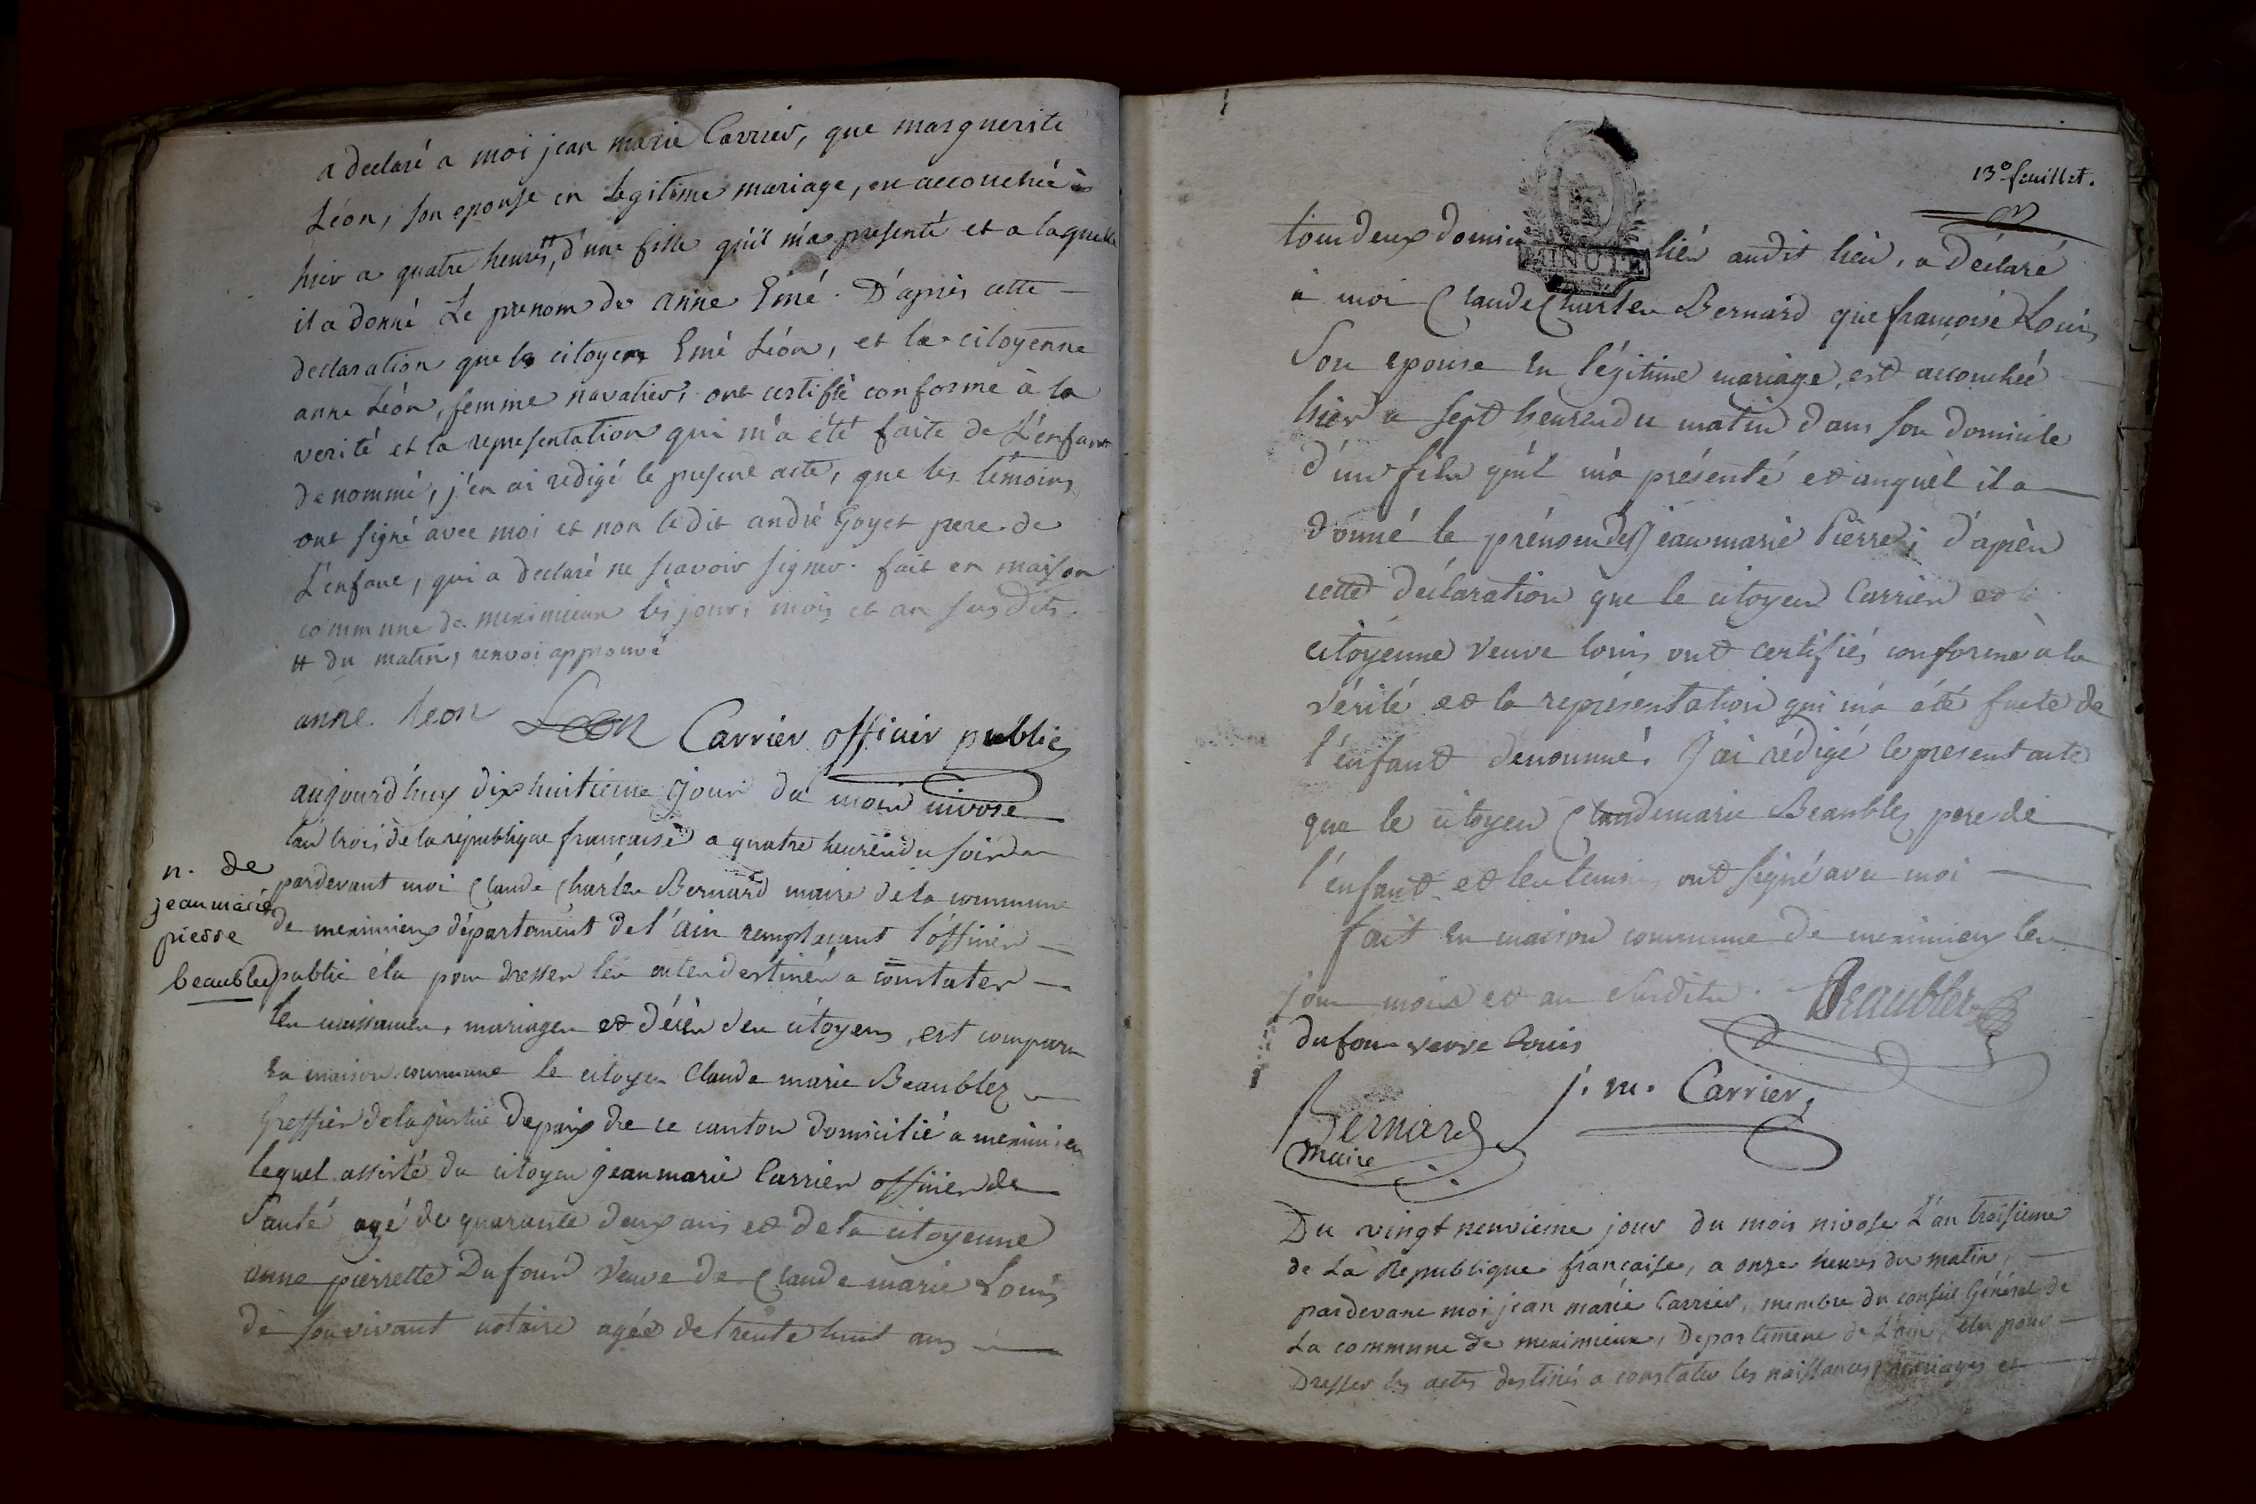 a declaré a moi jean marie Carrier, que marguerite
Léon, son epouse en legitime mariage, est accouchée
hier a quatre heures ++, d'une fille qu'il m'a presenté et a laquelle
il a donné Le prenom de anne Emé. D'après cette
declaration que le citoyen Emé Léon, et la citoyenne
anne Léon, femme navatier, ont certifié conforme à la
verité et la representation qui m'a été faite de L'enfant
denommé, j'en ai redigé le present acte, que les témoins
ont signé avec moi et non ledit andré Goyet pere de
L'enfant, qui a declaré ne sçavoir signer. fait en maison
commune de meximieux les jour, mois et an susdits.
++ du matin, renvoi approuvé
anne leon Leon Carrier officier public
aujourd'huy dixhuitieme jour du mois nivose
l'an trois de la république francaise a quatre heures du soir
n. de
jean marie
pierre
beaublez
pardevant moi Claude Charles Bernard maire de la commune
de meximieux département de l'ain remplacant l'officier
public élu pour dresser les actes destinés a constater
les naissances, mariages et décès des citoyens, est comparu
en maison commune le citoyen Claude marie Beaublez
greffier de la justice de paix de ce canton domicilié a meximieux
lequel assisté du citoyen jean marie Carrier officier de
Santé agé de quarante deux ans et de la citoyenne
anne pierrette Dufour veuve de Claude marie Louis
de son vivant notaire agée de trente huit ans
13e feuillet.
MINUTE
tous deux domicilié audit lieu, a déclaré
à moi Claude Charles Bernard que francoise Louis
Son epouse en légitime mariage, est accouchée
hier a sept heures du matin dans son domicile
d'un fils qu'il m'a présenté et auquel il a
donné le prénom de Jean marie Pierre; d'après
cette déclaration que le citoyen Carrier et la
citoyenne veuve louis ont certifiés conforme à la
vérité et la représentation qui m'a été faite de
l'enfant denommé. J'ai rédigé le present acte
que le citoyen Claude marie Beaublez pere de
l'enfant et les temoins ont signé avec moi
fait en maison commune de meximieux les
jour mois et an susdits. Beaublez
dufour veuve louis
j. m. Carrier
Bernard
maire
Du vingt neuvieme jour du mois nivose L'an troisieme
de La Republique française, a onze heures du matin,
pardevant moi jean marie Carrier, membre du conseil Général de
La commune de meximieux, Departement de L'ain, élu pour
Dresser les actes destinés a constater les naissances, mariages et